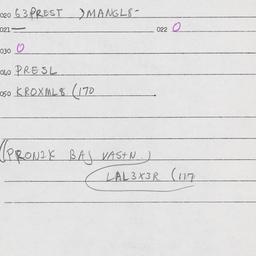 020 63PREST )MANGL8-
021 — 022 0
030 0
040 PRESL
050 KROXML8 (170
(PRONIK BAJ VASTN.)
LAL3X3R (117